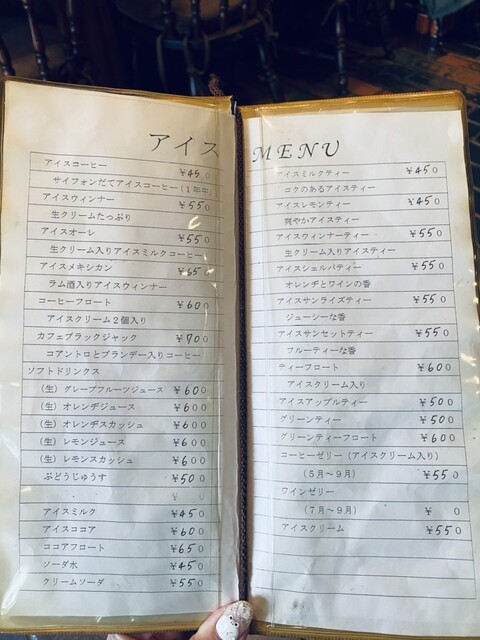 アイス MENU
アイスコーヒー ¥450
サイフォンだてアイスコーヒー(1年中)
アイスウィンナー ¥550
生クリームたっぷり
アイスオーレ ¥550
生クリーム入りアイスミルクコーヒー
アイスメキシカン ¥650
ラム酒入りアイスウィンナー
コーヒーフロート ¥600
アイスクリーム2個入り
カフェブラックジャック ¥700
コアントロとブランデー入りコーヒー
ソフトドリンクス
(生) グレープフルーツジュース ¥600
(生) オレンヂジュース ¥600
(生) オレンヂスカッシュ ¥600
(生) レモンジュース ¥600
(生) レモンスカッシュ ¥600
ぶどうじゅうす ¥500
¥ 0
アイスミルク ¥450
アイスココア ¥600
ココアフロート ¥650
ソーダ水 ¥450
クリームソーダ ¥550
アイスミルクティー ¥450
コクのあるアイスティー
アイスレモンティー ¥450
爽やかアイスティー
アイスウィンナーティー ¥550
生クリーム入りアイスティー
アイスシェルパティー ¥550
オレンヂとワインの香
アイスサンライズティー ¥550
ジューシーな香
アイスサンセットティー ¥550
フルーティーな香
ティーフロート ¥600
アイスクリーム入り
アイスアップルティー ¥500
グリーンティー ¥500
グリーンティーフロート ¥600
コーヒーゼリー(アイスクリーム入り)
(5月〜9月) ¥550
ワインゼリー
(7月〜9月) ¥ 0
アイスクリーム ¥550